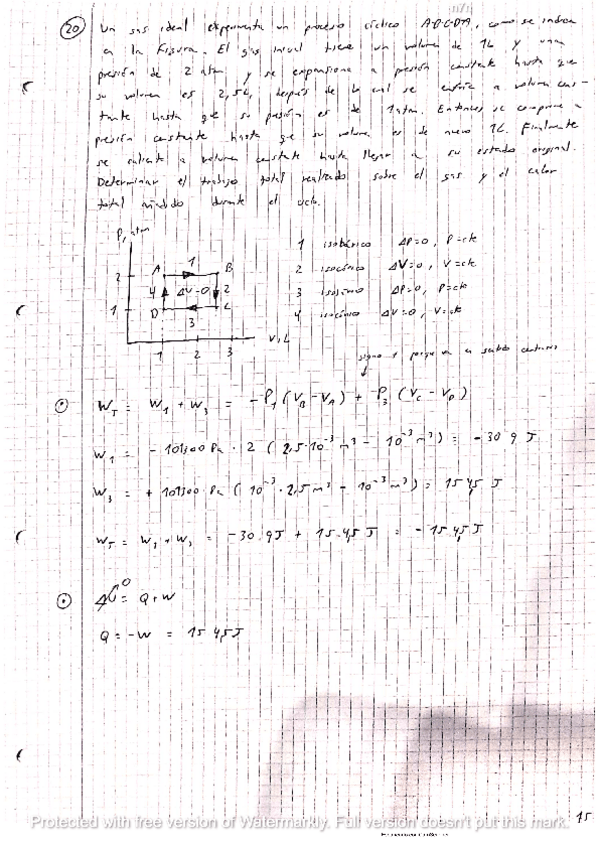 20 Un gas ideal experimenta un proceso cíclico A-B-C-D-A, como se indica
en la Figura. El gas inicial tiene un volumen de 1L y una
presión de 2 atm, y se expansiona a presión constante hasta que
su volumen es 2,5L, después de lo cual se enfría a volumen cons-
tante hasta que su presión es de 1 atm. Entonces se comprime a
presión constante hasta que su volumen es de nuevo 1L. Finalmente
se calienta a volumen constante hasta llegar a su estado original.
Determinar el trabajo total realizado sobre el gas y el calor
total añadido durante el ciclo.
P, atm
1 isobárico ΔP=0, P=cte
A 1 B
2 isocórico ΔV=0, V=cte
2
4 ΔV=0 2
3 ΔP=0, P=cte
1 D C
3
4 isocórico ΔV=0, V=cte
V, L
1 2 3
signo + porque va en sentido
W_T = W_1 + W_3 = -P_1 (V_B - V_A) + P_3 (V_C - V_D)
W_1 = - 101300 Pa · 2 ( 2,5·10^-3 m^3 - 10^-3 m^3 ) = - 30 9 J
W_3 = + 101300 Pa ( 10^-3 · 2,5 m^3 - 10^-3 m^3 ) = 15 4,5 J
W_T = W_1 + W_3 = - 30 9 J + 15 4,5 J = - 15 4,5 J
ΔU^0 = Q + W
Q = - W = 15 4,5 J
15
Protected with free version of Watermarkly. Full version doesn't put this mark.